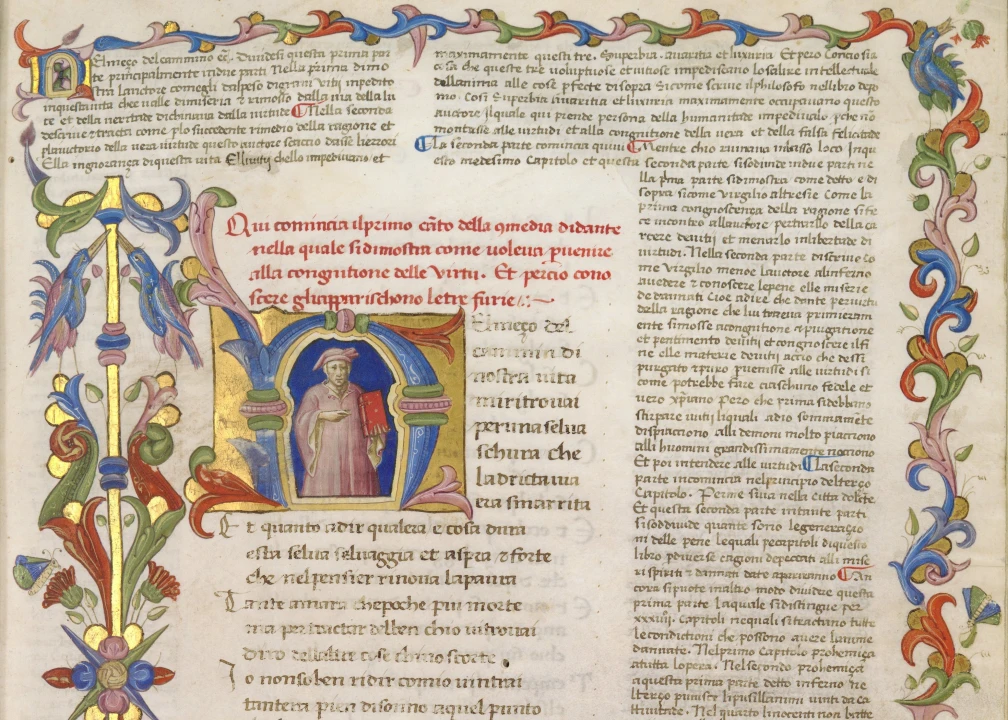 Nelmeço del cammino &c̃. Dividesi questa prima par
te principalmente indue parti Nella prima dimo
stra lauctore comegli dalpeso digrani vitii inpedito
inquestauita cheè ualle dimiseria è rimosso dalla uia della lu
ce et della ueritade dichinaua dalla uirtude Nella seconda
descriue etracta come plo succedente rimedio della ragione et
plauctorio della uera uirtude questo auctore scaccio dasse lierrori
Ella ingnorança diquesta uita Elluitii chello impediuano et
maximamente questi tre. Superbia. auaritia et luxuria Et pero concio sia
cosa che queste tre uoluptiose etuitiose impediscano losalire intellectuale
dellanima alle cose pfecte disopra sicome scriue ilphilosofo nellibro depo
mo. Cosi Superbia auaritia etluxuria maximamente occupauano questo
auctore ilquale qui prende persona della humanitade impediualo. che no
montasse alle uirtudi et alla congnitione della uera et della falsa felicitade
La seconda parte comincia quiui Mentre chio ruuinaua inbasso loco Inqu
esto medesimo Capitolo et questa seconda parte sisodiuide indue parti ne
lla pma parte sidimostra come detto e di
sopra sicome Virgilio altresie Come la
prima congnoscença della ragione sife
ce incontro allauctore pertrarllo della ca
rcere deuitii et menarlo inlibertade di
uirtudi. Nella seconda parte discriue co
me Virgilio menoe lauctore alinferno
auedere & conoscere lepene elle miserie
de dannati Cioe adire che dante peruirtu
della ragione che lui traeua primieram
ente simosse acongnitione & piugatione
et pentimento deuitii et congnoscere ilfi
ne elle materie deuitii accio che dessi
purgato & puro puenisse alle uirtudi si
come potrebbe fare ciaschuno fedele et
uero xpiano Pero che prima sidebbano
stirpare iuitii liquali adio sommamẽte
dispiacciono alli demoni molto piacciono
alli huomini grandissimamente nociono
Et poi intendere alle uirtudi Laseconda
parte incomincia nelprincipio delterço
Capitolo. Perme siua nella citta dolẽte.
Et questa seconda parte intante parti
sisoddiuide quante sono legeneraçio
ni delle pene lequali pecapitoli diquesto
libro pdiuerse cagioni depeccati alli mise
ri spiriti & dannati date appariranno An
cora sipuote inaltro modo diuidere questa
prima parte laquale sidistingue per
xxxiiij. Capitoli nequali sitractano tutte
lecondictioni che possono auere lanime
dannate. Nelprimo Capitolo prohemiça
atutta lopera. Nelsecondo prohemiça
aquesta prima parte detto inferno Ne
lterço punisce lipusillanimi uinti da ca
ttiuitade. Nel quarto linnocenti non batte
Qui comincia ilprimo cãto della 9media didante
nella quale sidimostra come voleua puenire
alla congnitione delle Virtu. Et percio cono
scere gliapparischono letre furie
Nelmeço del
cammin di
nostra uita
miritrouai
peruna selua
schura che
ladricta uia
era smarrita
Et quanto adir qualera e cosa dura
esta selua seluaggia et aspra & forte
che nelpensier rinoua lapaura
Tante amara chepoche piu morte
ma pertractar delben chio uitrouai
diro dellaltre cose chiuo scorte
Io nonso ben ridir comio uintrai
tantera pien disonno aquel punto